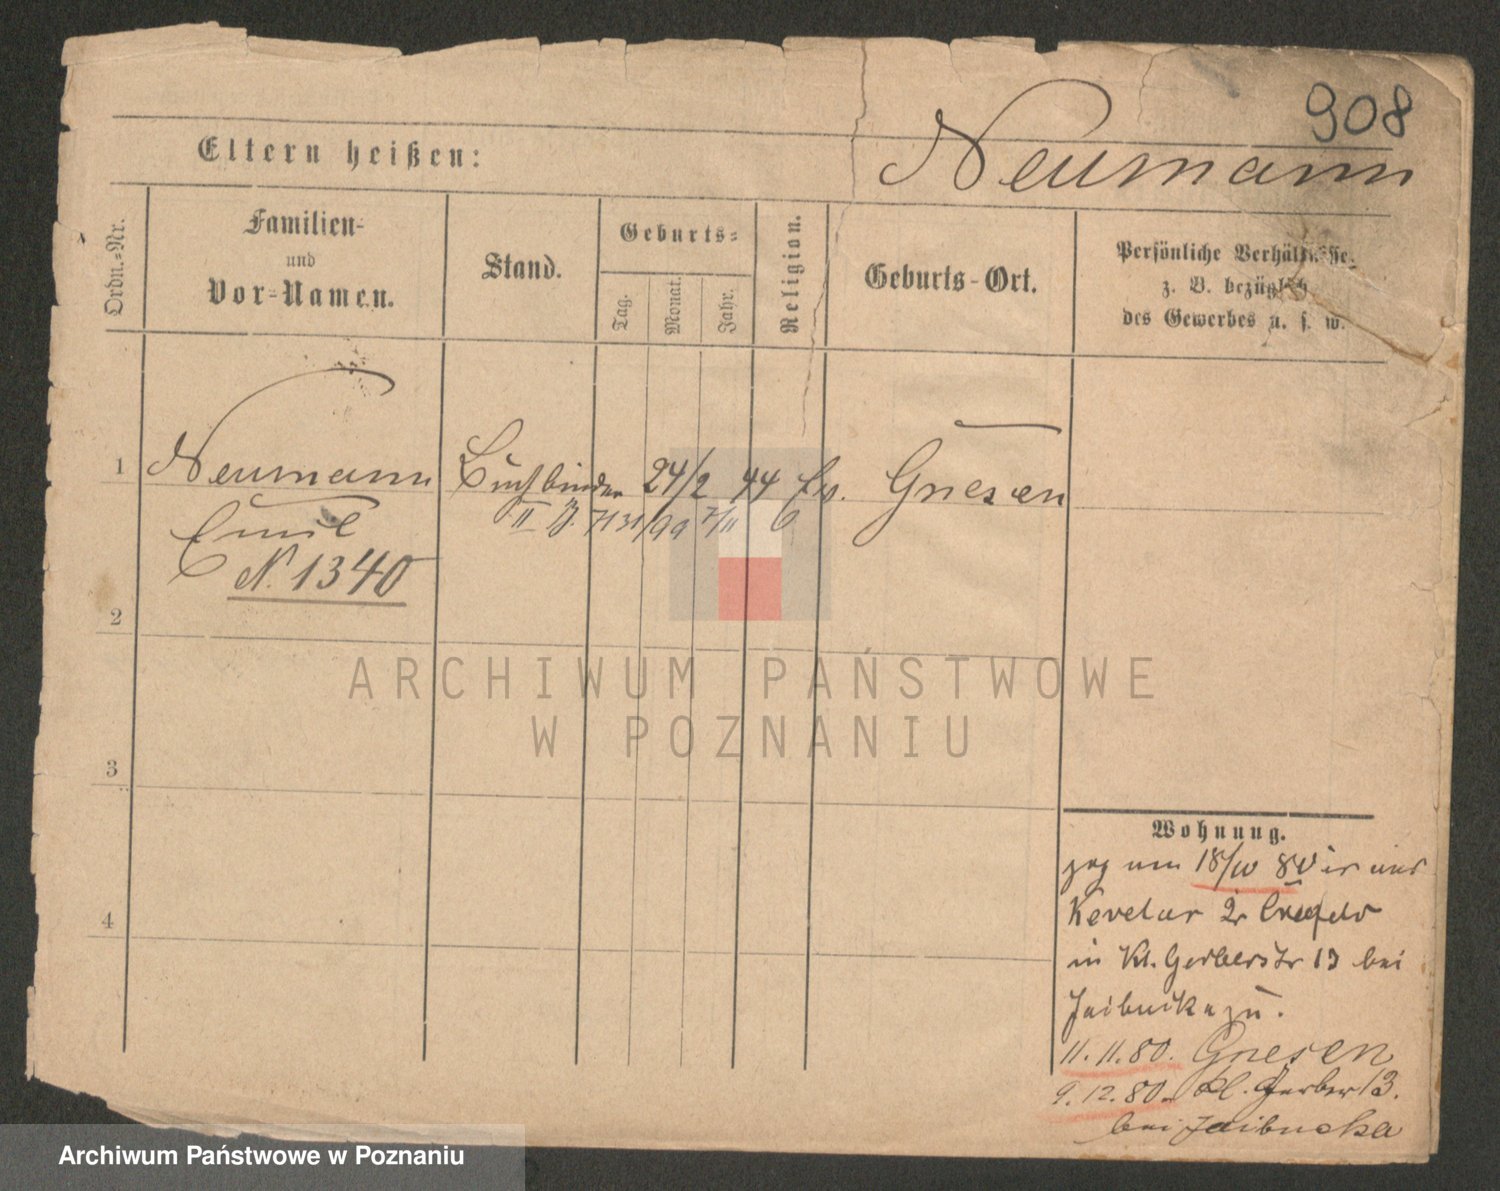 908
Neumann
Eltern heißen:
Ordn.=Nr.
Familien-
und
Vor=Namen.
Stand.
Geburts=
Tag.
Monat.
Jahr.
Religion.
Geburts-Ort.
Persönliche Verhältnisse,
z. B. bezüglich
des Gewerbes u. s. w.
1 Neumann Buchbinder 24/2 44 Ev. Gnesen
Emil
N. 1340
2
3
4
Wohnung.
zog am 18/10 80 aus
Kevelar Cr
in Kl. Gerberstr 13 bei
zu.
11. 11. 80. Gnesen
9. 12. 80. Kl. Gerber 13.
bei
ARCHIWUM PAŃSTWOWE
W POZNANIU
Archiwum Państwowe w Poznaniu